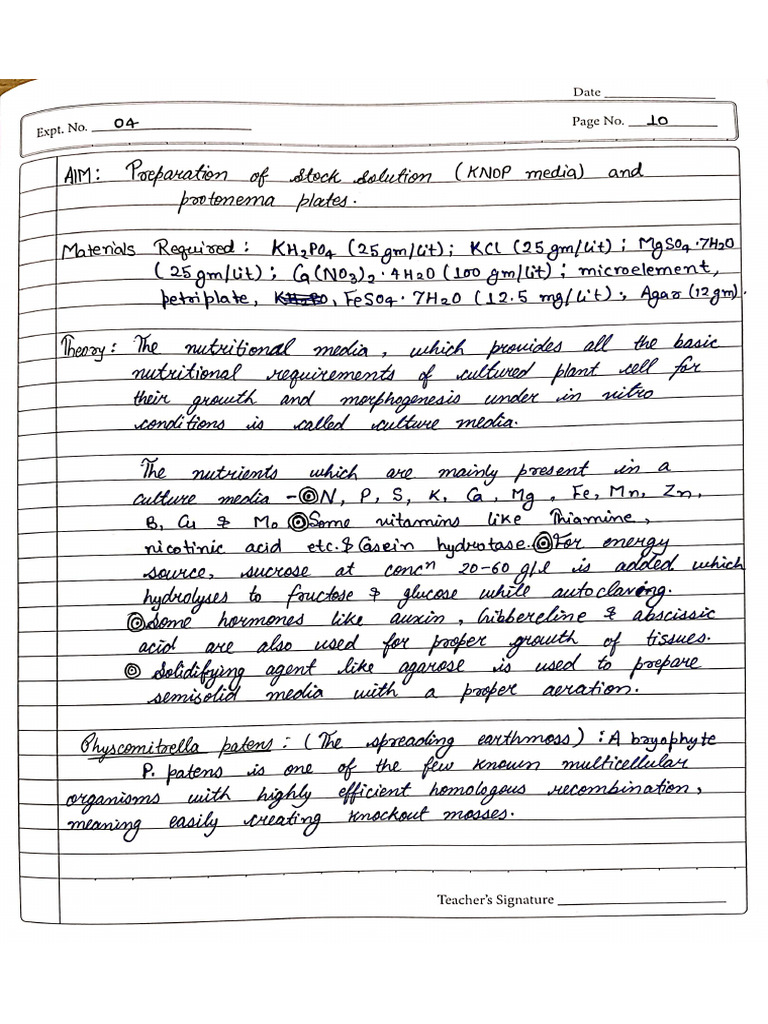 Date
Expt. No. 04
Page No. 10
AIM: Preparation of stock solution (KNOP media) and
protonema plates.
Materials Required: KH2PO4 (25gm/lit); KCl (25gm/lit); MgSO4·7H2O
(25gm/lit); Ca(NO3)2·4H2O (100 gm/lit); microelement,
petriplate, FeSO4·7H2O (12.5 mg/lit); Agar (12gm).
Theory: The nutritional media, which provides all the basic
nutritional requirements of cultured plant cell for
their growth and morphogenesis under in vitro
conditions is called culture media.
The nutrients which are mainly present in a
culture media - N, P, S, K, Ca, Mg, Fe, Mn, Zn,
B, Cu & Mo Some vitamins like Thiamine,
nicotinic acid etc. & Casein hydrotase. For energy
source, sucrose at concn 20-60 g/l is added which
hydrolyses to fructose & glucose while autoclaving.
Some hormones like auxin, Gibbereline & abscissic
acid are also used for proper growth of tissues.
Solidifying agent like agarose is used to prepare
semisolid media with a proper aeration.
Physcomitrella patens: (The spreading earthmoss): A bryophyte
P. patens is one of the few known multicellular
organisms with highly efficient homologous recombination,
meaning easily creating knockout mosses.
Teacher's Signature